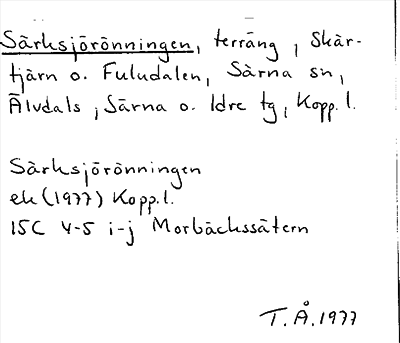 Särksjörönningen, terräng, Skär-
tjärn o. Fuludalen, Särna sn,
Älvdals, Särna o. Idre tg, Kopp. l.
Särksjörönningen
ek (1977) Kopp. l.
15C 4-5 i-j Morbäckssätern
T. Å. 1977